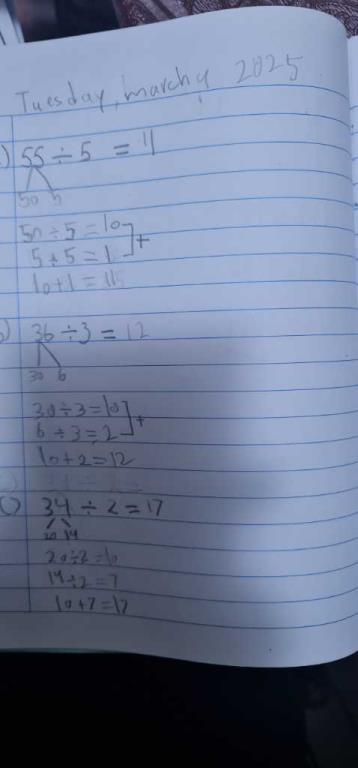 Tuesday, march 4 2025
) 55 ÷ 5 = 11
50 5
50 ÷ 5 = 10
5 ÷ 5 = 1 ] +
10 + 1 = 11
) 36 ÷ 3 = 12
30 6
30 ÷ 3 = 10
6 ÷ 3 = 2 ] +
10 + 2 = 12
) 34 ÷ 2 = 17
20 14
20 ÷ 2 = 10
14 ÷ 2 = 7
10 + 7 = 17